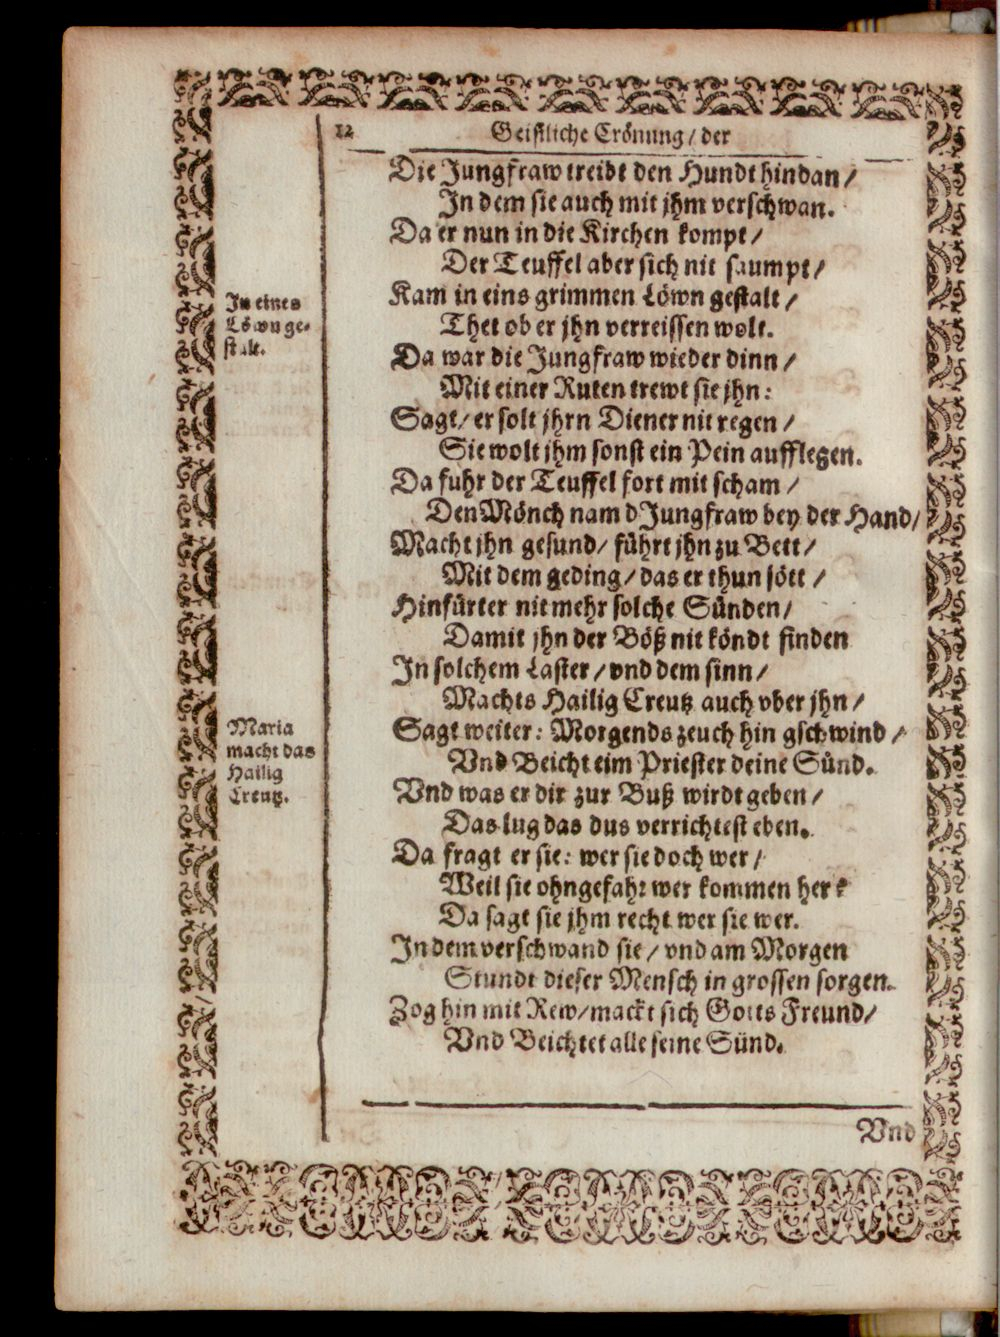 12
Geistliche Crönung / der
Die Jungfraw treibt den Hundt hindan /
In dem sie auch mit jhm verschwan.
Da er nun in die Kirchen kompt /
Der Teuffel aber sich nit saumpt /
Kam in eins grimmen Löwn gestalt /
In eines
Löwn ge-
stalt.
Thet ob er jhn verreissen wolt.
Da war die Jungfraw wieder dinn /
Mit einer Ruten trewt sie jhn:
Sagt / er solt jhrn Diener nit regen /
Sie wolt jhm sonst ein Pein aufflegen.
Da fuhr der Teuffel fort mit scham /
Den Mönch nam d Jungfraw bey der Hand /
Macht jhn gesund / führt jhn zu Bett /
Mit dem geding / das er thun sött /
Hinfürter nit mehr solche Sünden /
Damit jhn der Böß nit köndt finden
In solchem Laster / vnd dem sinn /
Machts Hailig Creutz auch vber jhn /
Maria
macht das
Hailig
Creutz.
Sagt weiter: Morgends zeuch hin gschwind /
Vnd Beicht eim Priester deine Sünd.
Vnd was er dir zur Buß wirdt geben /
Das lug das dus verrichtest eben.
Da fragt er sie: wer sie doch wer /
Weil sie ohngefahr wer kommen her?
Da sagt sie jhm recht wer sie wer.
In dem verschwand sie / vnd am Morgen
Stundt dieser Mensch in grossen sorgen.
Zog hin mit Rew / mackt sich Gotts Freund /
Vnd Beichtet alle seine Sünd.
Vnd